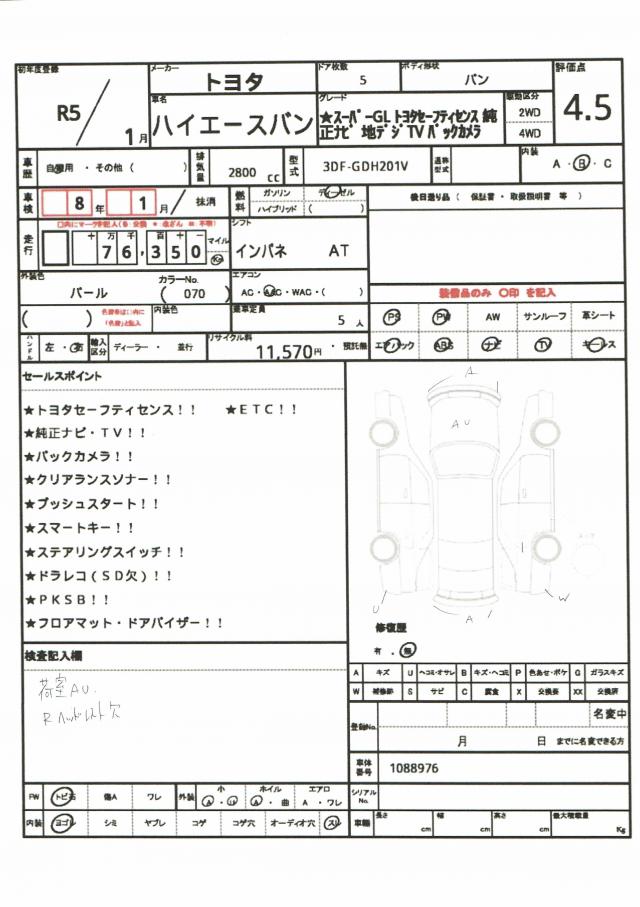 初年度登録 R5 / 1月
メーカー トヨタ
ドア枚数 5
ボディ形状 バン
評価点 4.5
車名 ハイエースバン
グレード ★スーパーGL トヨタセーフティセンス 純
正ナビ 地デジTV バックカメラ
駆動区分 2WD
4WD
車歴 自家用 ・ その他 ( )
排気量 2800 cc
型式 3DF-GDH201V
通称型式
内装 A ・ B ・ C
車検 8年 1月 / 抹消
燃料 ガソリン ディーゼル
ハイブリッド ( )
後日送り品 ( 保証書 ・ 取扱説明書 等 )
□内にマークを記入($ 交換 * 改ざん # 不明)
走行 十 万 千 百 十 一
76,350 マイル
Km
シフト インパネ AT
外装色 パール
カラーNo. ( 070 )
エアコン AC ・ AAC ・ WAC ・ ( )
装備品のみ 〇印 を記入
( ) 色替車は□内に
「色替」と記入
内装色
乗車定員 5 人
PS PW AW サンルーフ 革シート
ハンドル 左 ・ 右
輸入区分 ディーラー ・ 並行
リサイクル料 11,570円 ・ 預託無
エアバック ABS ナビ TV キーレス
セールスポイント
★トヨタセーフティセンス!! ★ETC!!
★純正ナビ・TV!!
★バックカメラ!!
★クリアランスソナー!!
★プッシュスタート!!
★スマートキー!!
★ステアリングスイッチ!!
★ドラレコ(SD欠)!!
★PKSB!!
★フロアマット・ドアバイザー!!
A
AU
U
A
W
修復歴
有 ・ 無
検査記入欄
荷室AU.
Rヘッドレスト欠
A キズ U ヘコミ・オサレ B キズ・ヘコミ P 色あせ・ボケ G ガラスキズ
W 補修跡 S サビ C 腐食 X 交換要 XX 交換済
登録No. 名変中
月 日 までに名変できる方
車体番号 1088976
シリアルNo.
FW トビ石 傷A ワレ
外装 小 A ・ U ホイル A ・ 曲 エアロ A ・ ワレ
内装 ヨゴレ シミ ヤブレ コゲ コゲ穴 オーディオ穴 スレ
車輌 長さ cm 幅 cm 高さ cm 最大積載量 Kg